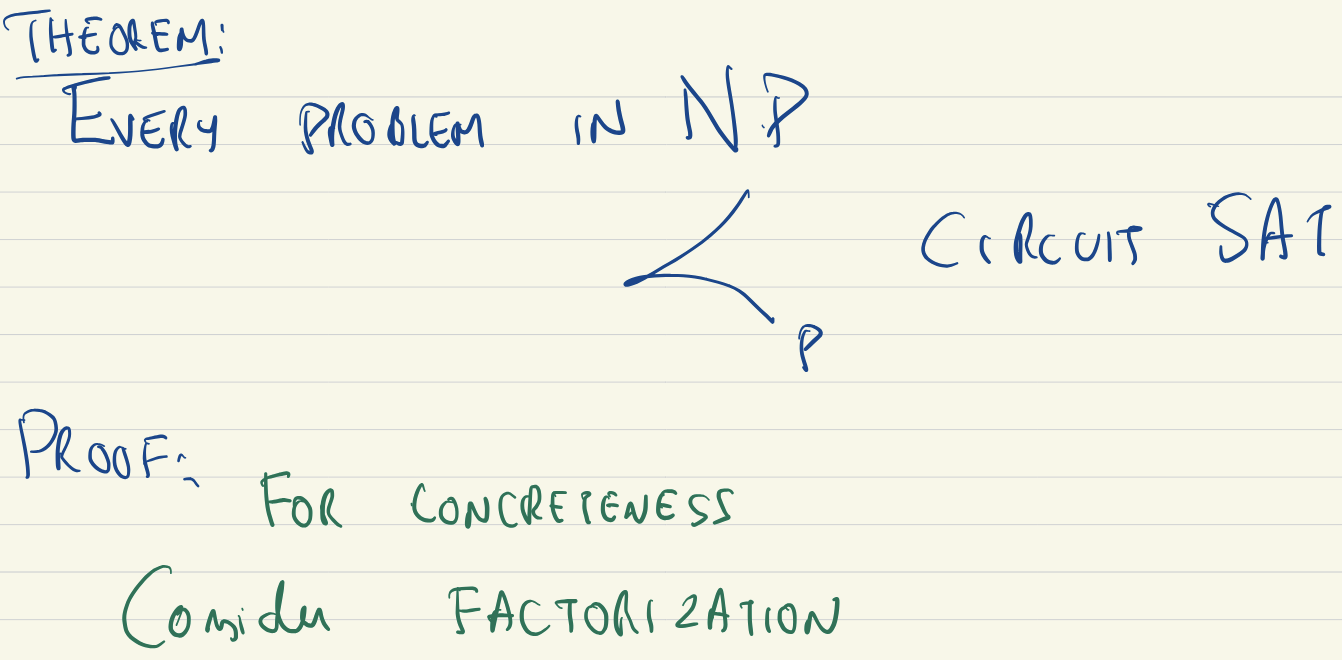 THEOREM:
EVERY PROBLEM IN NP
< P CIRCUIT SAT
PROOF:
FOR CONCRETENESS
Consider FACTORIZATION